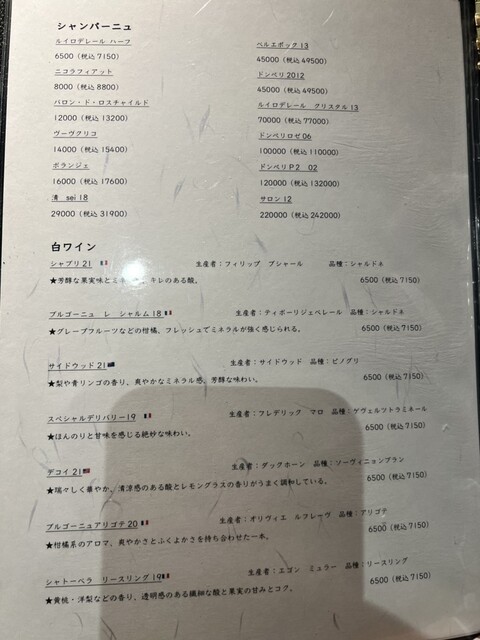 シャンパーニュ
ルイロデレール ハーフ
6500（税込 7150）
ニコラフィアット
8000（税込 8800）
バロン・ド・ロスチャイルド
12000（税込 13200）
ヴーヴクリコ
14000（税込 15400）
ボランジェ
16000（税込 17600）
清 sei 18
29000（税込 31900）
ベルエポック 13
45000（税込 49500）
ドンペリ 2012
45000（税込 49500）
ルイロデレール クリスタル 13
70000（税込 77000）
ドンペリロゼ 06
100000（税込 110000）
ドンペリP2 02
120000（税込 132000）
サロン 12
220000（税込 242000）
白ワイン
シャブリ 21 生産者：フィリップ ブシャール 品種：シャルドネ
★芳醇な果実味とミネ キレのある酸。 6500（税込 7150）
ブルゴーニュ レ シャルム 18 生産者：ティボーリジェベレール 品種：シャルドネ
★グレープフルーツなどの柑橘、フレッシュでミネラルが強く感じられる。 6500（税込 7150）
サイドウッド 21 生産者：サイドウッド 品種：ピノグリ
★梨や青リンゴの香り、爽やかなミネラル感、芳醇な味わい。 6500（税込 7150）
スペシャルデリバリー19 生産者：フレデリック マロ 品種：ゲヴェルツトラミネール
★ほんのりと甘味を感じる絶妙な味わい。 6500（税込 7150）
デコイ 21 生産者：ダックホーン 品種：ソーヴィニョンブラン
★瑞々しく華やか、清涼感のある酸とレモングラスの香りがうまく調和している。 6500（税込 7150）
ブルゴーニュアリゴテ 20 生産者：オリヴィエ ルフレーヴ 品種：アリゴテ
★柑橘系のアロマ、爽やかさとふくよかさを持ち合わせた一本。 6500（税込 7150）
シャトーベラ リースリング 19 生産者：エゴン ミュラー 品種：リースリング
★黄桃・洋梨などの香り、透明感のある繊細な酸と果実の甘みとコク。 6500（税込 7150）